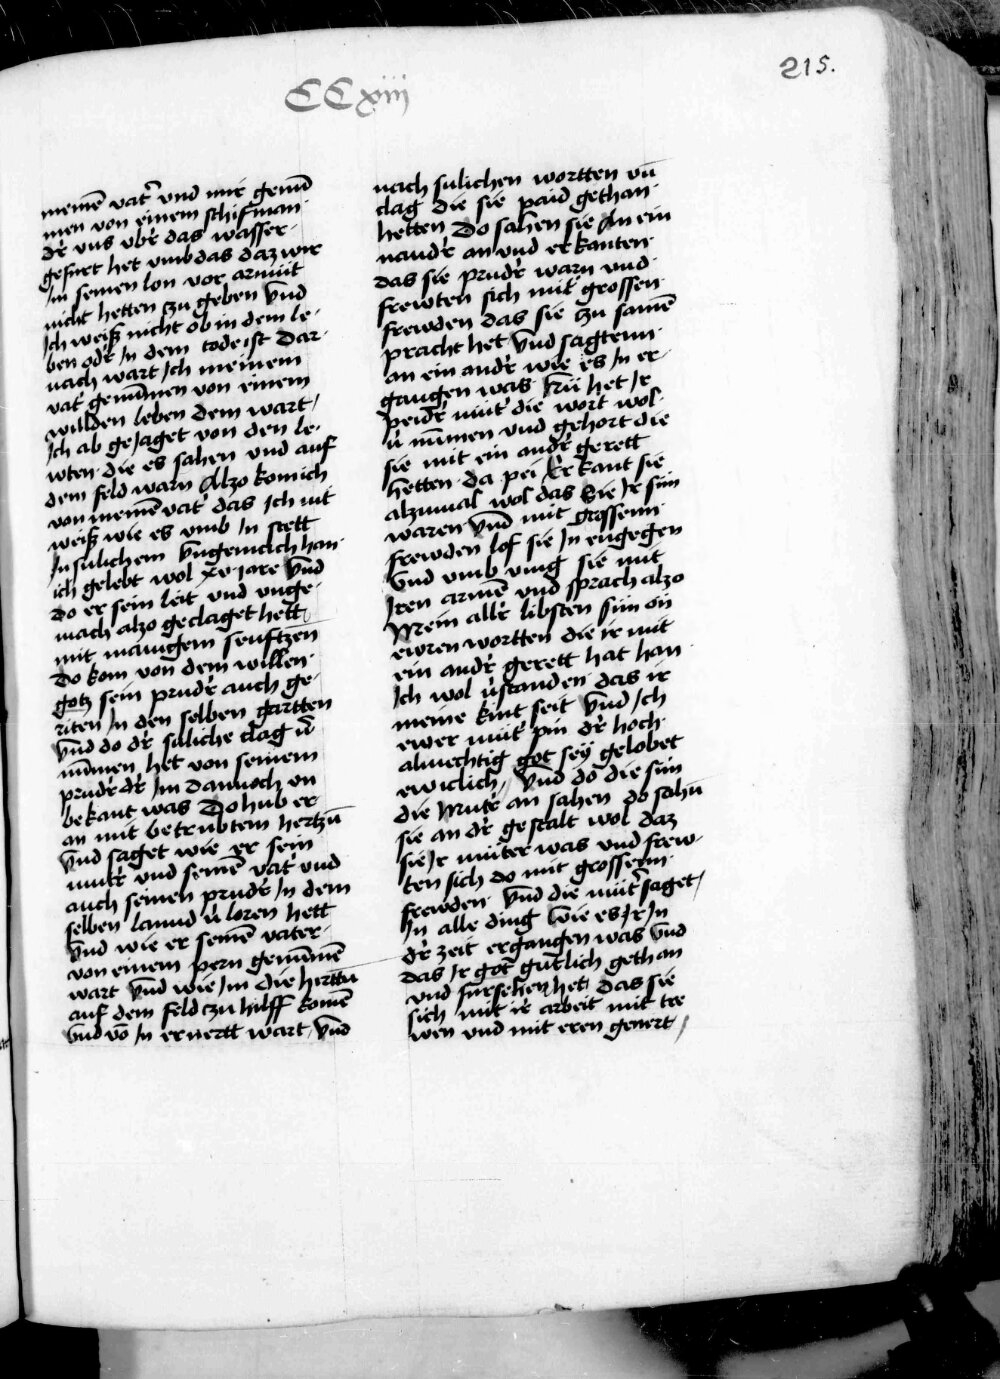 215.
CCxiii
meinē vat͛ vnd mir genū
men von einem schifman·
dr͛ vns vbr͛ das wasser·
gefurt het vmb das daz wir
Jn seinen lon vor armüt
nicht hetten czu geben Vnd
Jch weiß nicht ob in dem le·
ben odr͛ Jn dem tode ist Dar·
nach wart Jch meinem
vat͛ genūmen von einem
willden leben dem wart /
Jch ab geJaget von den le·
wten· die es sahen vnd auf
dem feld warn Alzo kom ich
von meinē vat͛ das Jch nit
weiß wie es vmb Jn stett
Jn sulichem vngemelich han·
ich gelebt wol xv Jare Vnd
Do er sein leit vnd vnge·
mach alzo geclaget hett
mit manigem seuftzen
Do kom von dem willen·
gotz sein prudr͛ auch ge·
riten Jn den selben gartten
Vnd do dr͛ suliche clag v̄
nūmen het von seinem
prudr͛ dr͛ Jm dannoch vn
bekant was Do hub er
an mit betrubtem hertzn̄
Vnd saget wie er sein
mutr͛ vnd seinē vat͛ vnd
auch seinen prudr͛ Jn dem
selben lannd v̄ loren hett
Vnd wie er seinē vater·
von einem pern genūmē
wart Vnd wie Jm die hirttn
auf dem feld czu hilff komē
Vnd vō Jn ernertt wart / Vnd
nach sulichen wortten vn̄
clag die sie paid gethan·
hetten Do sahen sie An ein
nandr͛ an vnd erkanten·
das sie prudr͛ warn vnd·
frewten sich mit grossen·
frewden das sie czu samē
pracht het Vnd sagtenn·
an ein andr͛ wie es Jn er·
gangen was Nū het Jr
peidr͛ mut͛ die wort wol·
v̄ nūmen vnd gehort die
sie mit ein andr͛ gerett
hetten· da pei Erkant sie
alzumal wol das Sie Jr sün
waren· Vnd mit grossenn·
frewden lof sie Jn engegen
Vnd vmb ving sie mit
Jren armē vnd sprach alzo
Mein allr͛ libsten sün ān
ewren wortten die ir mit
ein andr͛ gerett hat han·
Jch wol v̄standen· das ir
meine kint seit Vnd Jch
ewer mut͛ pin dr͛ hoch·
almechtig got sey gelobet
ewiclich / Vnd do die sün
die Mutr͛ an sahen do sahn̄
sie an dr͛ gestalt wol daz
sie Jr müter was vnd frew·
ten sich do mit grossenn·
frewden· Vnd die mut͛ saget /
Jn alle ding Wie es Jr Jn
dr͛ zeit ergangen was Vnd
das Jr got gutlich gethan
vnd fursehen het· das sie
sich mit ir arbeit mit tre
wen vnd mit eren genert /